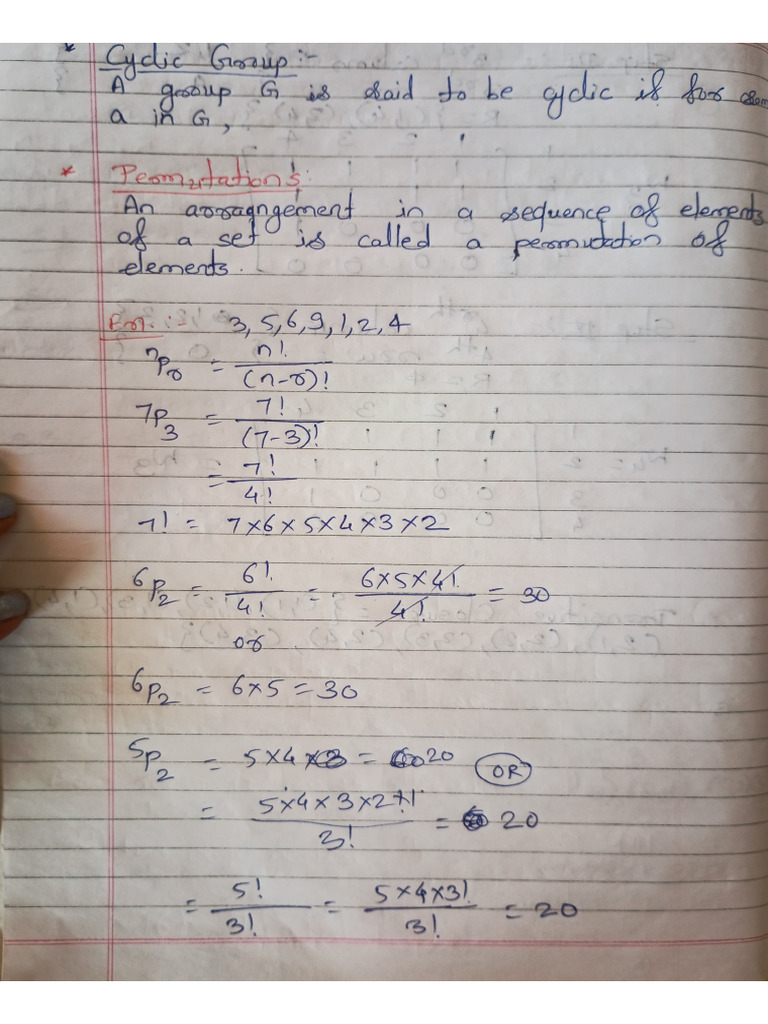 * Cyclic Group :-
A group G is said to be cyclic if for som
a in G,
* Permutation's:
An arragngement in a sequence of elements
of a set is called a permutation of
elements.
Ex.: 3, 5, 6, 9, 1, 2, 4
ⁿPᵣ = n! / (n-r)!
7P₃ = 7! / (7-3)!
= 7! / 4!
7! = 7×6×5×4×3×2
⁶P₂ = 6! / 4! = 6×5×4! / 4! = 30
or
⁶P₂ = 6×5 = 30
⁵P₂ = 5×4 = 20 OR
= 5×4×3×2×1 / 3! = 20
= 5! / 3! = 5×4×3! / 3! = 20